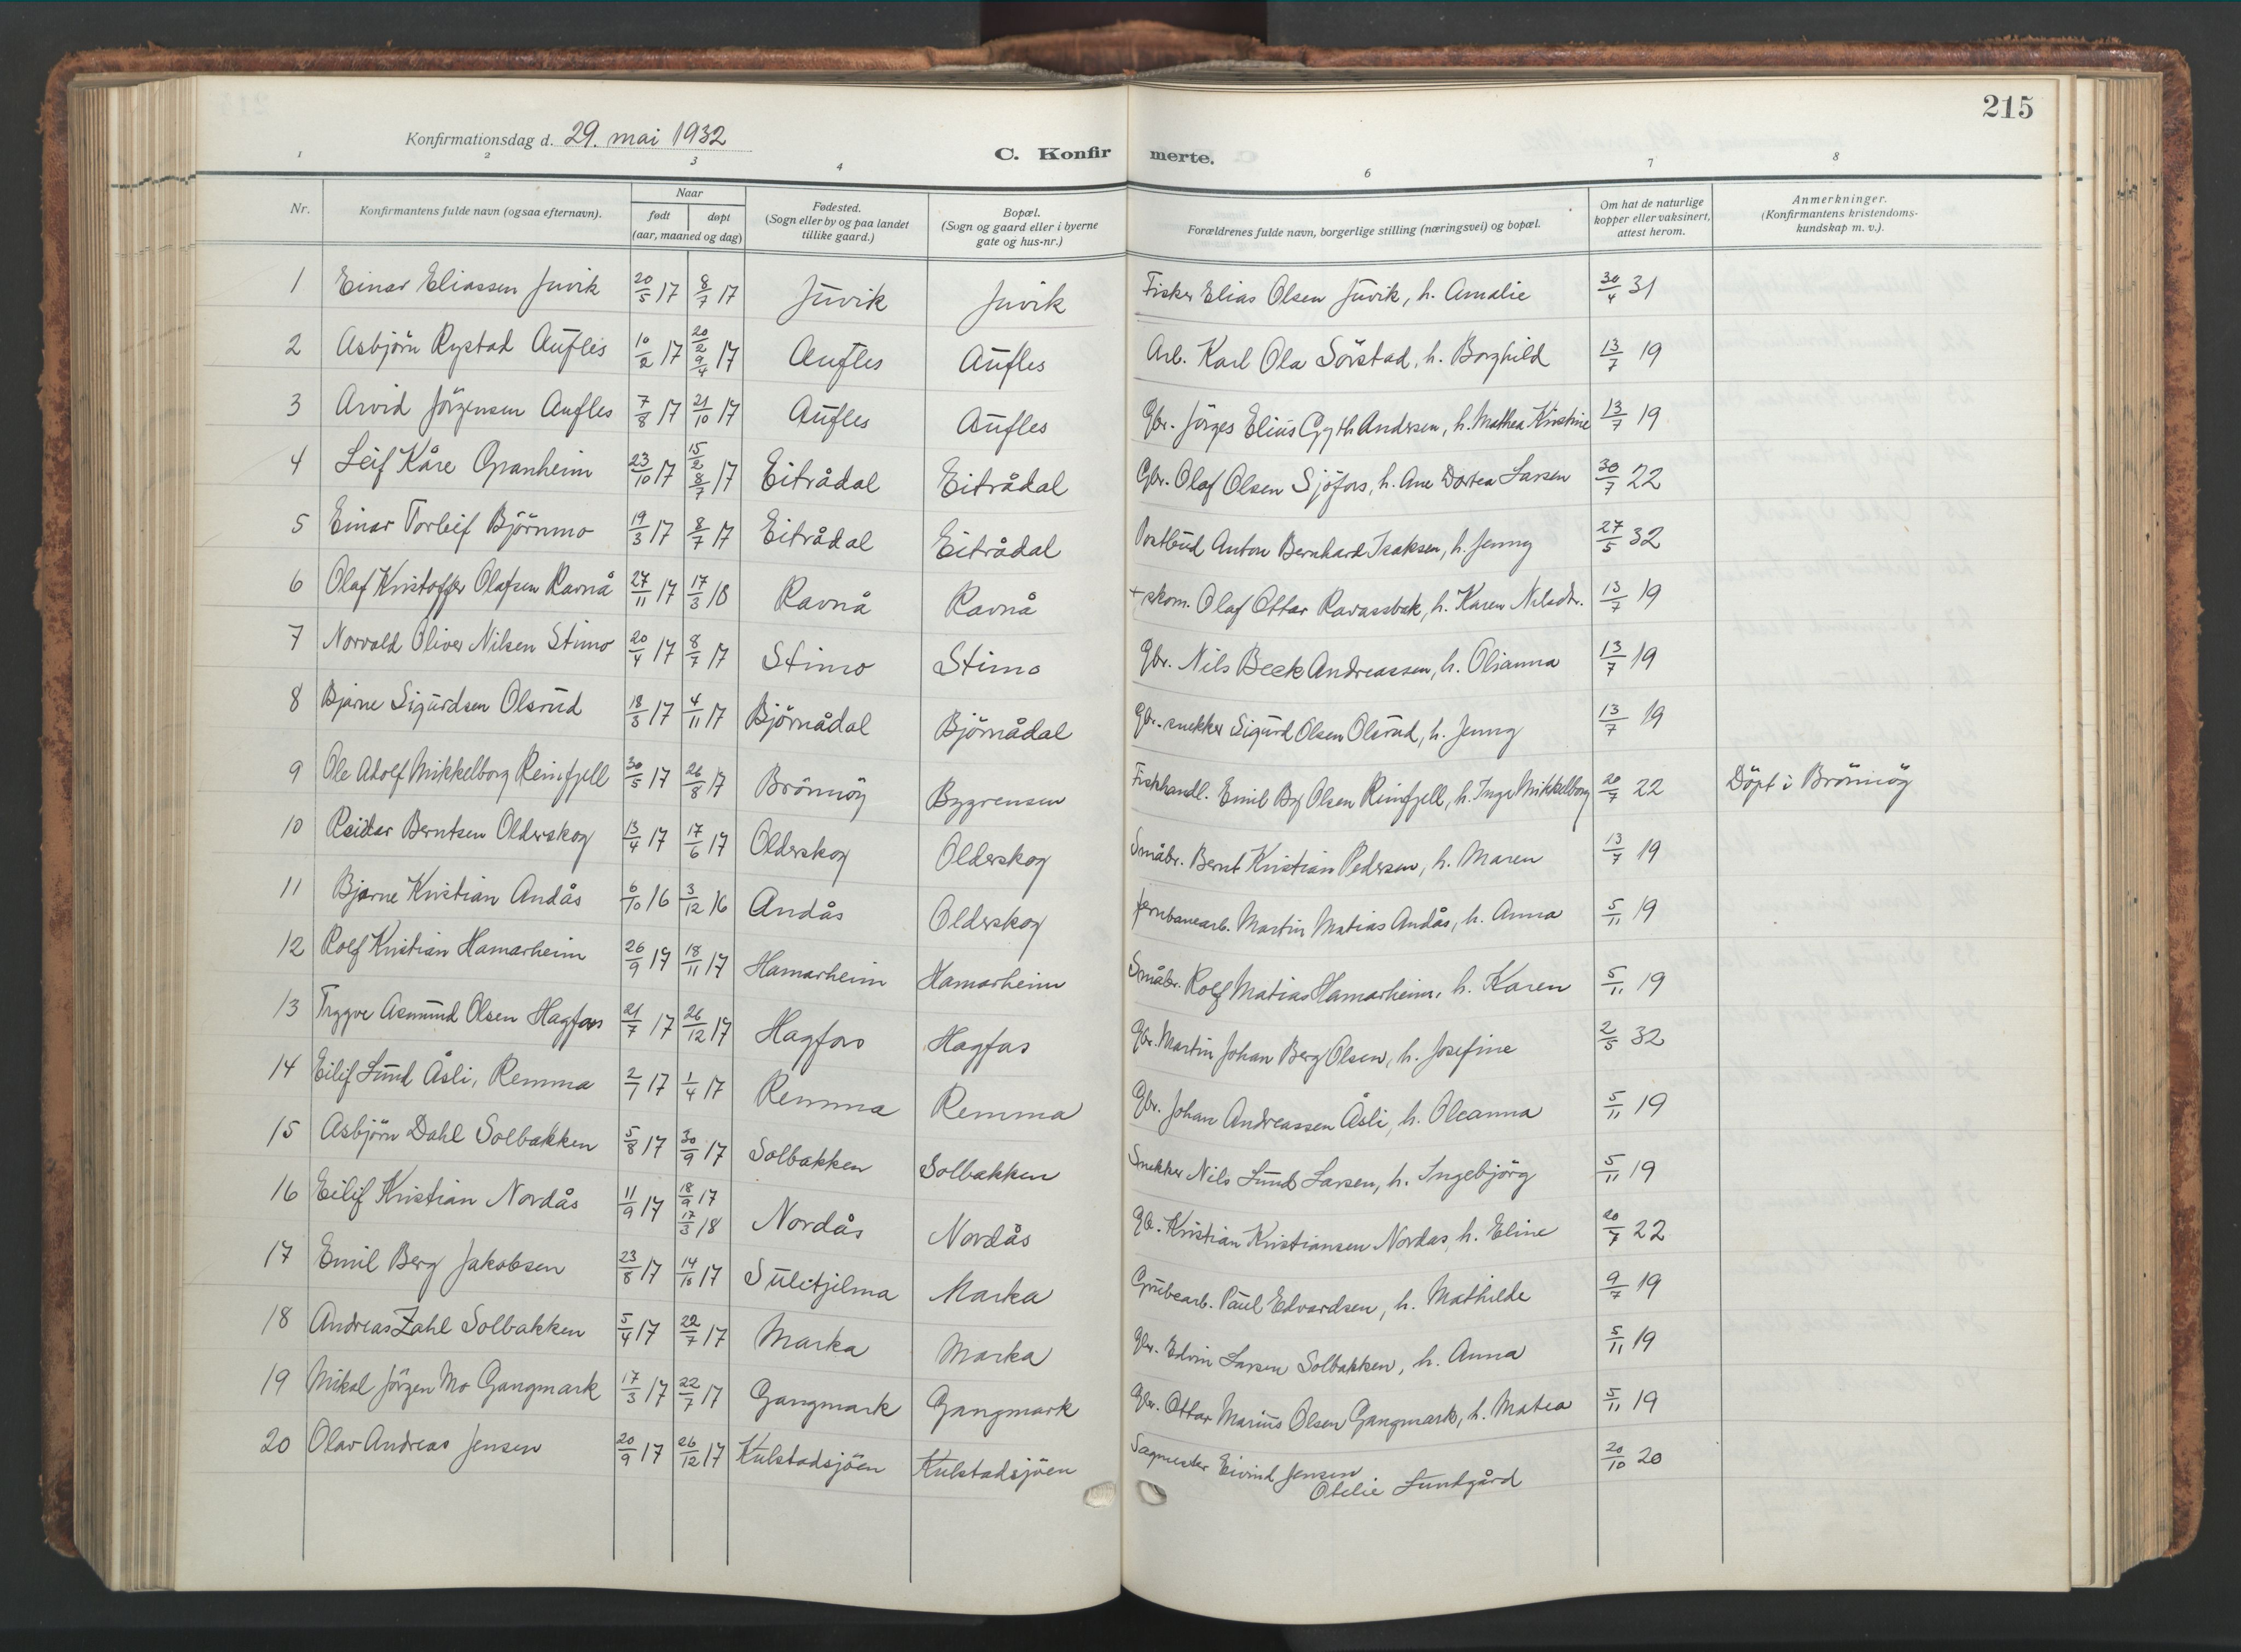 215
Konfirmationsdag d. 29. mai 1932
C. Konfir merte.
1 2 3 4 6 7 8
Nr.
Konfirmantens fulde navn (ogsaa efternavn).
Naar
født døpt
(aar, maaned og dag)
Fødested.
(Sogn eller by og paa landet
tillike gaard.)
Bopæl.
(Sogn og gaard eller i byerne
gate og hus-nr.)
Forældrenes fulde navn, borgerlige stilling (næringsvei) og bopæl.
Om hat de naturlige
kopper eller vaksinert,
attest herom.
Anmerkninger.
(Konfirmantens kristendoms-
kundskap m. v.).
1 Einar Eliassen Juvik 20/5 17 8/7 17 Juvik Juvik Fisker Elias Olsen Juvik, h. Amalie 30/4 31
2 Asbjörn Rystad Aufles 10/2 17 20/2 9/4 17 Aufles Aufles Arb. Karl Ola Sörstad, h. Borghild 13/7 19
3 Arvid Jörgensen Aufles 7/8 17 21/10 17 Aufles Aufles Gbr. Jörges Elius Gyth Andersen, h. Mathea Kristine 13/7 19
4 Leif Kåre Granheim 23/10 17 15/2 8/7 17 Eitrådal Eitrådal Gbr. Olaf Olsen Sjöfors, h. Ane Dortea Larsen 30/7 22
5 Einar Torleif Björnmo 19/3 17 8/7 17 Eitrådal Eitrådal Postbud Anton Bernhard Isaksen, h. Jenny 27/5 32
6 Olaf Kristoffer Olafsen Ravnå 27/11 17 17/3 18 Ravnå Ravnå + skom. Olaf Ottar Ravassbak, h. Karen Nilsdtr. 13/7 19
7 Norvald Oliver Nilsen Stimo 20/4 17 8/7 17 Stimo Stimo Gbr. Nils Beck Andreassen, h. Olianna 13/7 19
8 Bjarne Sigurdsen Olsrud 18/3 17 4/11 17 Björnådal Björnådal Gbr. snekker Sigurd Olsen Olsrud, h. Jenny 13/7 19
9 Ole Adolf Mikkelborg Reinfjell 30/5 17 26/8 17 Brönnöy Bygrensen Fiskhandl. Emil By Olsen Reinfjell, h. Inga Mikkelborg 20/7 22 Döpt i Brönnöy
10 Reidar Berntsen Olderskog 13/4 17 17/6 17 Olderskog Olderskog Småbr. Bernt Kristian Pedersen, h. Maren 13/7 19
11 Bjarne Kristian Andås 6/10 16 3/12 16 Andås Olderskog Jernbanearb. Martin Matias Andås, h. Anna 5/11 19
12 Rolf Kristian Hamarheim 26/9 17 18/11 17 Hamarheim Hamarheim Småbr. Rolf Matias Hamarheim, h. Karen 5/11 19
13 Trygve Asmund Olsen Hagfors 21/7 17 26/12 17 Hagfors Hagfors Gbr. Martin Johan Berg Olsen, h. Josefine 2/5 32
14 Eilif Lund Åsli, Remma 2/1 17 1/4 17 Remma Remma Gbr. Johan Andreassen Åsli, h. Oleanna 5/11 19
15 Asbjörn Dahl Solbakken 5/8 17 30/9 17 Solbakken Solbakken Snekker Nils Lund Larsen, h. Ingebjörg 5/11 19
16 Eilif Kristian Nordås 11/9 17 18/9 17 17/3 18 Nordås Nordås Gb. Kristian Kristiansen Nordas, h. Eline 20/7 22
17 Emil Berg Jakobsen 23/8 17 14/10 17 Sulitjelma Marka Grubearb. Paul Edvardsen, h. Mathilde 9/7 19
18 Andreas Zahl Solbakken 5/4 17 22/7 17 Marka Marka Gbr. Edvin Larsen Solbakken, h. Anna 5/11 19
19 Mikal Jörgen Mo Gangmark 17/3 17 22/7 17 Gangmark Gangmark Gbr. Ottar Marius Olsen Gangmark, h. Matea 5/11 19
20 Olav Andreas Jensen 20/9 17 26/12 17 Kulstadsjöen Kulstadsjöen Sagmester Eivind Jensen 20/10 20
Otelie Lundgård